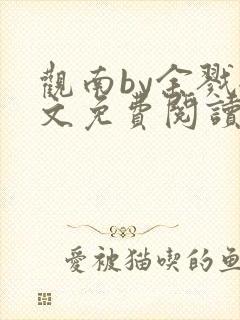 觀南by全戮
文免費閱讀
愛被猫喫的魚